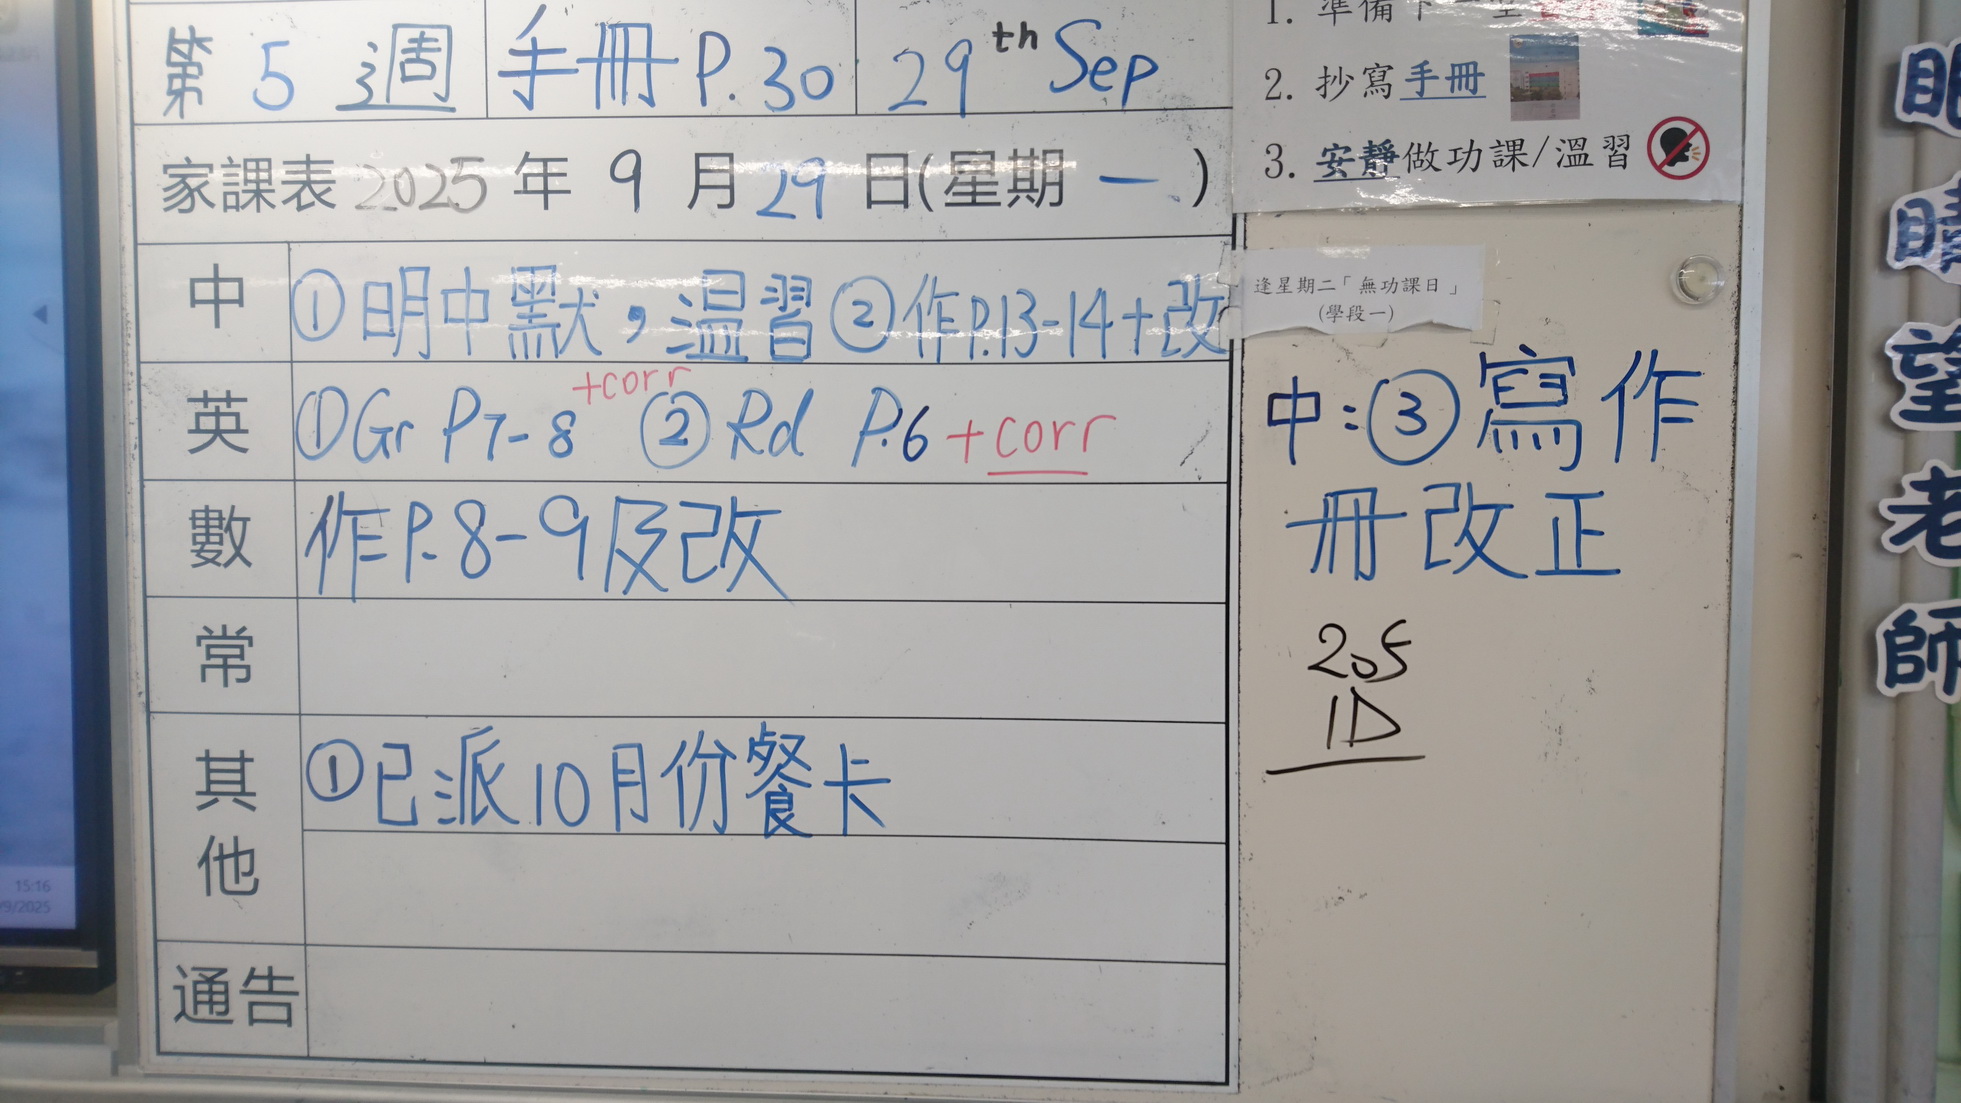 第 5 週 手冊 P.30 29th Sep
家課表 2025 年 9 月 29 日(星期 一 )
中 ①明中默，溫習 ②作P.13-14+改
英 ①Gr P7-8 +corr ②Rd P.6 +corr
數 作P.8-9及改
常
其他 ①已派10月份餐卡
通告
1. 準備
2. 抄寫手冊
3. 安靜做功課/溫習
逢星期二「無功課日」
(學段一)
中:③寫作
冊改正
205
1D
眼
睛
望
老
師
15:16
9/2025